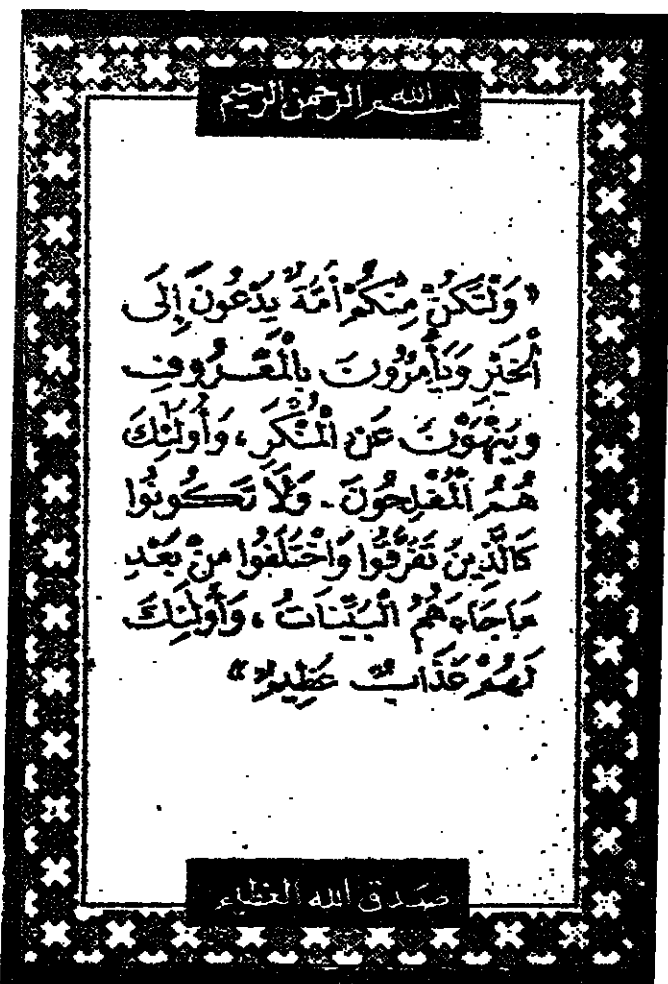 بسم الله الرحمن الرحيم
« وَلْتَكُنْ مِنْكُمْ أُمَّةٌ يَدْعُونَ إِلَى
الْخَيْرِ وَيَأْمُرُونَ بِالْمَعْرُوفِ
وَيَنْهَوْنَ عَنِ الْمُنْكَرِ ، وَأُولَٰئِكَ
هُمُ الْمُفْلِحُونَ - وَلَا تَكُونُوا
كَالَّذِينَ تَفَرَّقُوا وَاخْتَلَفُوا مِنْ بَعْدِ
مَا جَاءَهُمُ الْبَيِّنَاتُ ، وَأُولَٰئِكَ
لَهُمْ عَذَابٌ عَظِيمٌ »
صدق الله العظيم